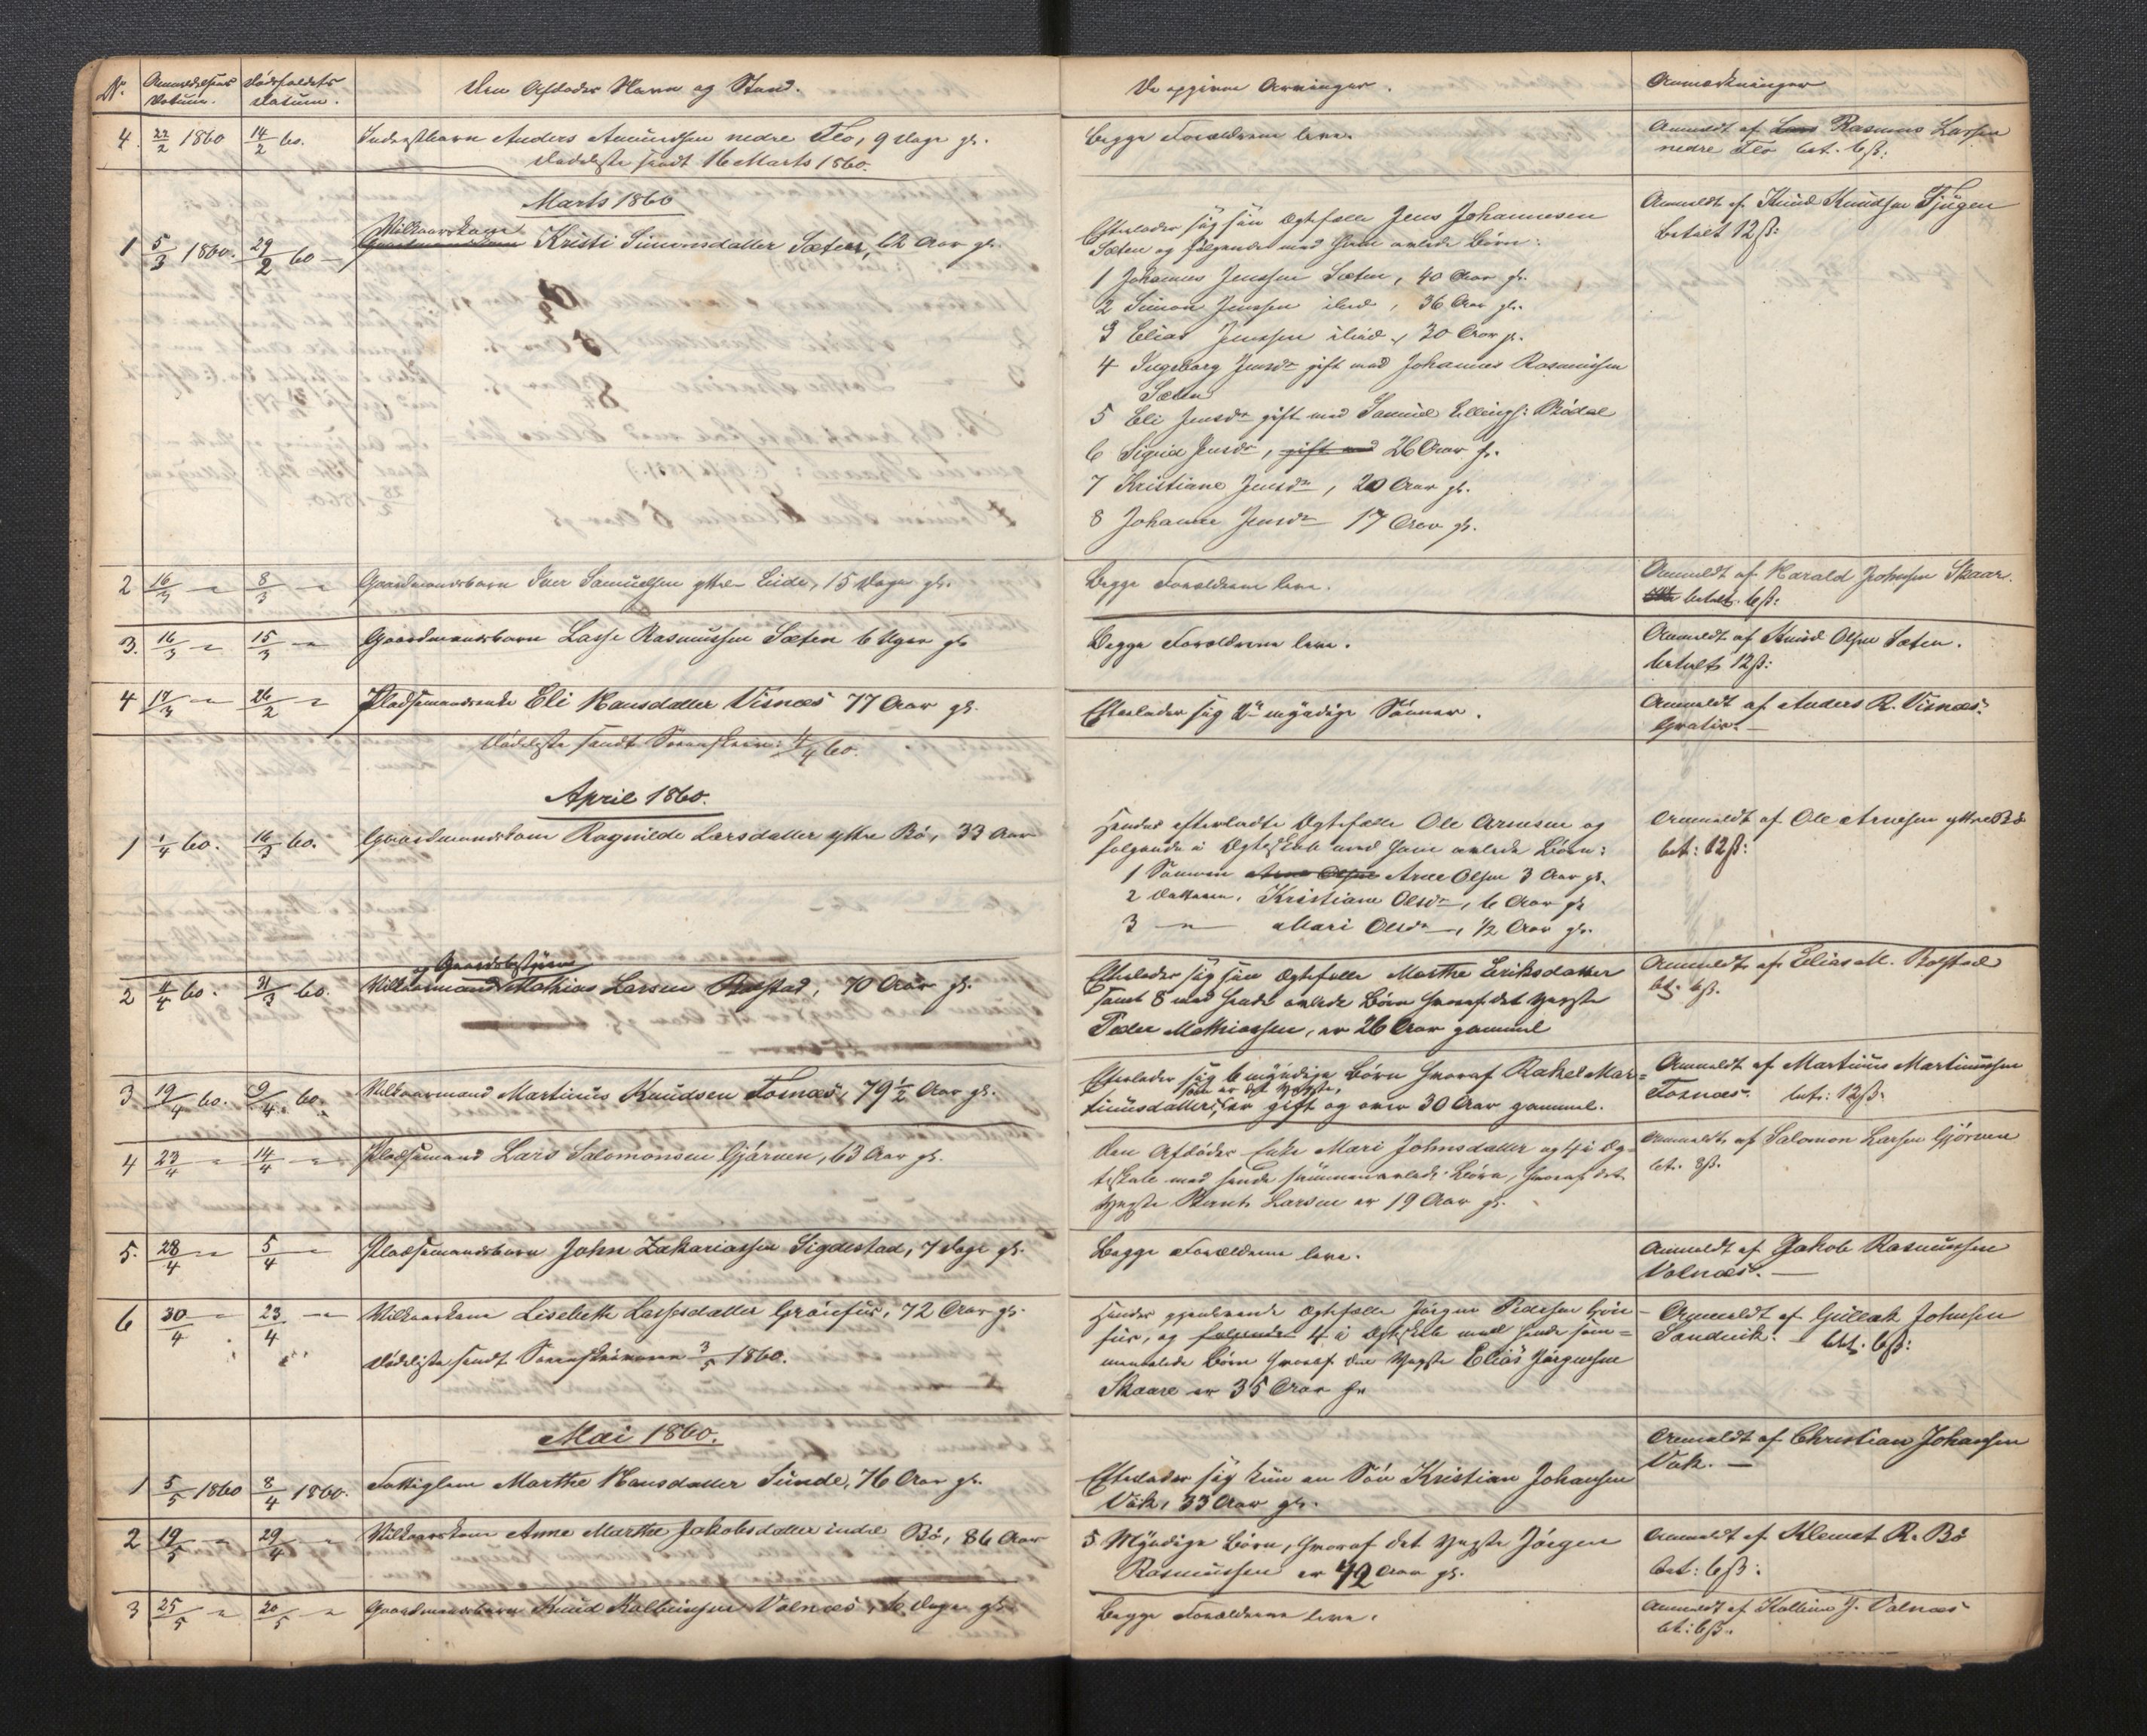 No. Anmeldelsens Datum. Dödsfaldets Datum. Den Afdödes Navn og Stand. De opgivne Arvinger. Anmærkninger
4. 22/2 1860 14/2 60. Inderstbarn Anders Amundsen nedre Flo, 9 Dage gl. Begge Forældrene leve. Anmeldt af Lars Rasmus Larsen
nedre Flo bet. 6 ß:
Dödsliste sendt 16 Marts 1860.
Marts 1860
1 5/3 1860. 29/2 60 Vilkaarskone Kristi Simonsdatter Sæten, 62 Aar gl.
Efterlader sig sin Ægtefælle Jens Johannesen
Sæten og følgende med ham avlede Børn:
1 Johannes Jenssen Sæten, 40 Aar gl.
2 Simon Jenssen ibid, 36 Aar gl.
3 Elias Jenssen ibid, 30 Aar gl.
4 Ingeborg Jensdr gift med Johannes Rasmussen
Sæten
5 Eli Jensdr gift med Samuel Ellings: Bödal
6 Sigrid Jensdr, gift med 26 Aar gl.
7 Kristiane Jensdr, 20 Aar gl.
8 Johanne Jensdr 17 Aar gl.
Anmeldt af Knud Knudsen Tjugen
betalt 12 ß:
2 16/3 " 8/3 " Gaardmandsbarn Iver Samuelsen yttre Eide, 15 Dage gl. Begge Forældrene leve. Anmeldt af Harald Johnsen Skaar.
betalt. 6 ß:
3. 16/3 " 15/3 " Gaardmandsbarn Lasse Rasmussen Sæten 6 Uger gl. Begge Forældrene leve. Anmeldt af Knud Olsen Sæten.
betalt 12 ß:
4 17/3 " 26/2 " Pladsemandsenke Eli Hansdatter Visnæs 77 Aar gl. Efterlader sig 2de myndige Sönner. Anmeldt af Anders R. Visnæs.
Gratis.
Dödsliste sendt Sorenskriv: 11/4 60.
April 1860.
1 1/4 60. 16/3 60. Gaardmandskone Ragnilde Larsdatter yttre Bö, 33 Aar
Hendes efterladte Ægtefælle Ole Arnesen og
følgende i Ægteskab med ham avlede Börn:
1 Sönnen Arne Olsen Arne Olsen 3 Aar gl.
2 Datteren. Kristiane Olsdr, 6 Aar gl.
3 " Mari Olsdr, 1/2 Aar gl.
Anmeldt af Ole Arnesen yttre Bö
bet: 12 ß:
Gaardbestyrer
2 11/4 60. 31/3 60. Vilkaarmand Mathias Larsen Bolstad, 70 Aar gl.
Efterlader sig sin Ægtefælle Marthe Eriksdatter
samt 8 med hende avlede Börn hvoraf det yngste
Peder Mathiassen, er 26 Aar gammel
Anmeldt af Elias M. Bolstad
bet. 6 ß.
3 19/4 60. 9/4 60. Vilkaarmand Martinus Knudsen Tonnæs, 79 1/2 Aar gl.
Efterlader sig 6 myndige Börn hvoraf Rakel Mar=
som er det yngste,
tinusdatter, er gift og over 30 Aar gammel.
Anmeldt af Martinus Martinussen
Tonnæs. bet: 12 ß.
4 23/4 " 14/4 " Pladsemand Lars Salomonsen Gjörven, 63 Aar gl.
Den Afdödes Enke Mari Johnsdatter og 4 i Æg=
teskab med hende sammenavlede Börn, hvoraf det
yngste Bernt Larsen er 19 Aar gl.
Anmeldt af Salomon Larsen Gjörven
bet. 8 ß.
5. 28/4 " 5/4 " Pladsemandsbarn John Zakariassen Sigdestad, 7 Dage gl. Begge Forældrene leve. Anmeldt af Jakob Rasmussen
Volnæs.
6 30/4 " 23/4 " Vilkaarskone Lisebeth Lassesdatter Grönfur, 72 Aar gl.
Dödsliste sendt Sorenskriveren 3/5 1860.
Hendes gjenlevende Ægtefælle Jörgen Pedersen Grön=
fur, og følgende 4 i Ægteskab med hende sam=
menavlede Börn hvoraf den yngste Elias Jörgensen
Skaare er 35 Aar gl.
Anmeldt af Gullak Johnsen
Sandvik. bet. 6 ß:
Mai 1860.
1 5/5 1860 8/4 1860. Fattiglem Marthe Hansdatter Sunde, 76 Aar gl.
Efterlader sig kun en Sön Kristian Johansen
Vik, 33 Aar gl.
Anmeldt af Christian Johansen
Vik.
2 19/5 " 29/4 " Vilkaarskone Anne Marthe Jakobsdatter indre Bö, 86 Aar
5 Myndige Börn, hvoraf det yngste Jörgen
Rasmussen er 42 Aar gl.
Anmeldt af Klemet R. Bö
bet: 6 ß:
3 25/5 " 20/5 " Gaardmandsbarn Knud Kolbeinsen Volnæs, 6 Dage gl. Begge Forældrene leve. Anmeldt af Kolbein J. Volnæs
bet: 6 ß.